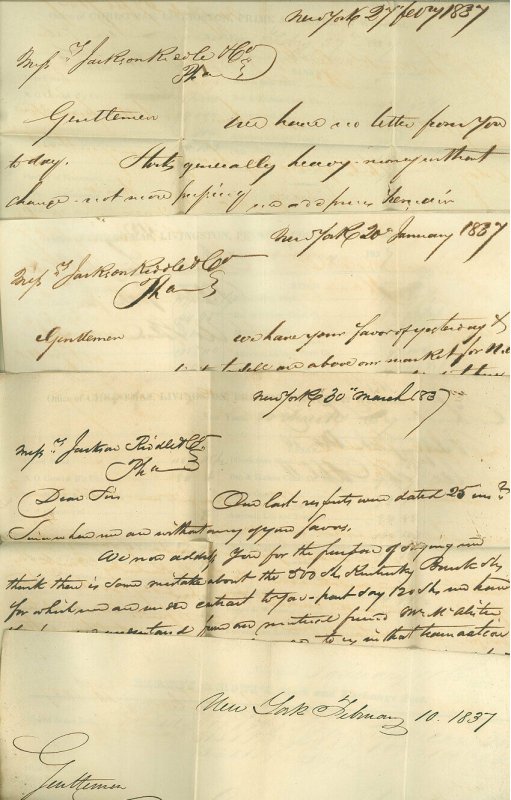 New York 27 feby 1837
Messrs Jackson Riddle & Co
Pha
Gentlemen we have no letter from you
to day. Stocks generally heavy - money without
change - not more pressing we are
New York 20 January 1837
Messrs Jackson Riddle & Co
Pha
Gentlemen we have your favor of yesterday &
to sell are above our market for
Office of CHRISTMAS, LIVINGSTON,
New York 30 March 183
Messrs Jackson Riddle & Co
Pha
Dear Sirs Our last respects were dated 25 ins
Since when we are without any of your favors.
We now address you for the purpose of saying we
think there is some mistake about the 500 sh Kentucky Bank Shs
for which we are under contract to you - part say 120 shs we have
understand from our mutual friend Mr
to us in that transaction
New York February 10. 1837
Gentlemen